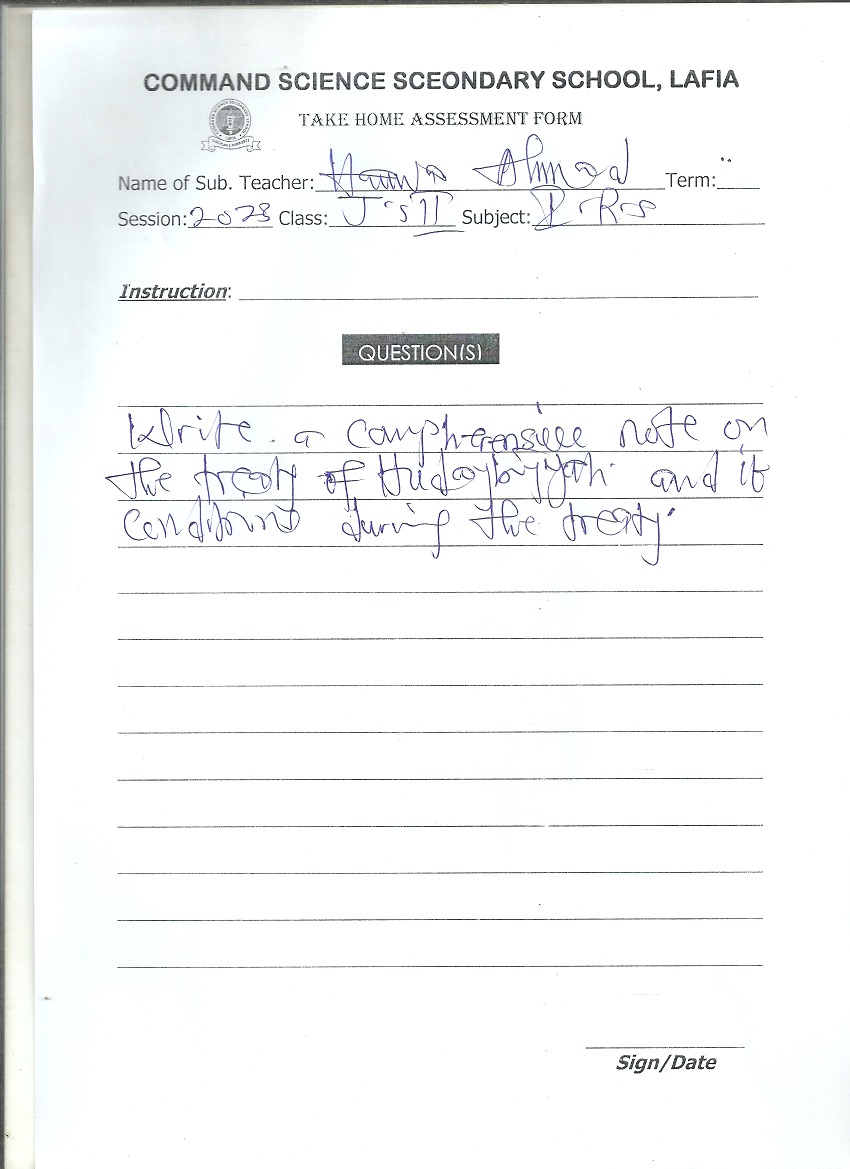 COMMAND SCIENCE SCEONDARY SCHOOL, LAFIA
TAKE HOME ASSESSMENT FORM
Name of Sub. Teacher: Ahmad Term:
Session: 2023 Class: JSII Subject: IRS
Instruction:
QUESTION(S)
Write a comprehensive note on
the treaty of Hudaybiyyah and it
conditions during the treaty.
Sign/Date